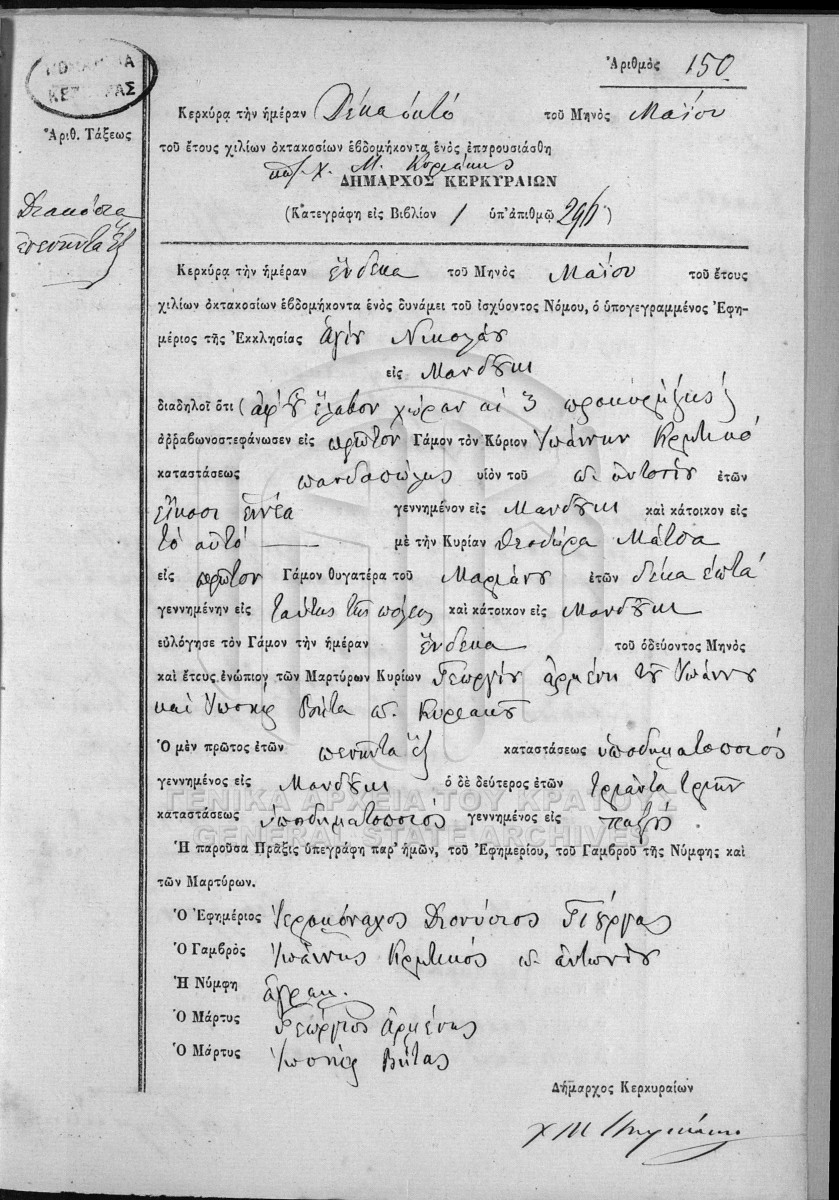 Ἀριθμὸς 150
ΚΕΡΚΥΡΑΣ
Ἀριθ. Τάξεως
Διακόσια
πενῆντα ἕξ
Κερκύρα τὴν ἡμέραν Δέκα ὀκτὸ τοῦ Μηνὸς Μαΐου
τοῦ ἔτους χιλίων ὀκτακοσίων ἑβδομήκοντα ἑνὸς ἐπαρουσιάσθη
Χ. Μ.
ΔΗΜΑΡΧΟΣ ΚΕΡΚΥΡΑΙΩΝ
(Κατεγράφη εἰς Βιβλίον 1 ὑπ' ἀπιθμῷ 296)
Κερκύρα τὴν ἡμέραν ἕνδεκα τοῦ Μηνὸς Μαΐου τοῦ ἔτους
χιλίων ὀκτακοσίων ἑβδομήκοντα ἑνὸς δυνάμει τοῦ ἰσχύοντος Νόμου, ὁ ὑπογεγραμμένος Ἐφη-
μέριος τῆς Ἐκκλησίας Ἁγίου Νικολάου
εἰς Μανδοῦκι
διαδηλοῖ ὅτι (ἀφ' οὗ ἔλαβον χώραν αἱ 3 προκυρήξεις)
ἀρραβωνοστεφάνωσεν εἰς πρῶτον Γάμον τὸν Κύριον Ἰωάννην Κρητικό
καταστάσεως πανδαπώλης υἱὸν τοῦ π. ἀντωνίου ἐτῶν
εἴκοσι ἐννέα γεννημένον εἰς Μανδοῦκι καὶ κάτοικον εἰς
τὸ αὐτό μὲ τὴν Κυρίαν Θεοδώρα Μάτσα
εἰς πρῶτον Γάμον θυγατέρα τοῦ Μαριάνου ἐτῶν δέκα ἑπτά
γεννημένην εἰς ταύτης τῆς πόλεως καὶ κάτοικον εἰς Μανδοῦκι
εὐλόγησε τὸν Γάμον τὴν ἡμέραν ἕνδεκα τοῦ ὁδεύοντος Μηνὸς
καὶ ἔτους ἐνώπιον τῶν Μαρτύρων Κυρίων Γεωργίου ἀρμένη τοῦ Ἰωάννου
καὶ Ἰωσήφ Βίτα π. Κυριακοῦ
Ὁ μὲν πρῶτος ἐτῶν πενῆντα ἕξ καταστάσεως ὑποδηματοποιός
γεννημένος εἰς Μανδοῦκι ὁ δὲ δεύτερος ἐτῶν τριάντα τριῶν
καταστάσεως ὑποδηματοποιός γεννημένος εἰς παξοὺς
ΓΕΝΙΚΑ ΑΡΧΕΙΑ ΤΟΥ ΚΡΑΤΟΥΣ
GENERAL STATE ARCHIVES
Ἡ παροῦσα Πρᾶξις ὑπεγράφη παρ' ἡμῶν, τοῦ Ἐφημερίου, τοῦ Γαμβροῦ τῆς Νύμφης καὶ
τῶν Μαρτύρων.
Ὁ Ἐφημέριος Ἱερομόναχος Διονύσιος Γιούργας
Ὁ Γαμβρὸς Ἰωάννης Κρητικός π. ἀντωνίου
Ἡ Νύμφη ἀγραμ.
Ὁ Μάρτυς Γεώργιος ἀρμένης
Ὁ Μάρτυς Ἰωσήφ Βίτας
Δήμαρχος Κερκυραίων
Χ Μ